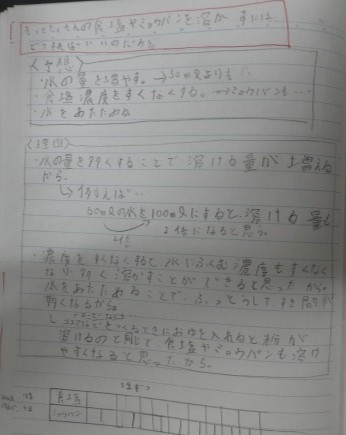 もっとたくさんの食塩やミョウバンを溶かすには
どうすればいいのだろう。
〈予想〉
・水の量を増やす。→50mℓよりも…
・食塩濃度をすくなくする。→ミョウバンも…
・水をあたためる
〈理由〉
・水の量を多くすることで溶ける量が増える
から。
↳例えば…
50mℓの水を100mℓにすると溶ける量も
2倍 2倍になると思う。
・濃度をすくなくすると、水にふくむ濃度もすくなく
なり多く溶かすことができると思ったから。
水をあたためることで、ふっとうして、
なるから。
をつくるときにお湯を入れると粉が
溶けるのと同じで、食塩やミョウバンも溶け
やすくなると思ったから。
食塩
ミョウバン